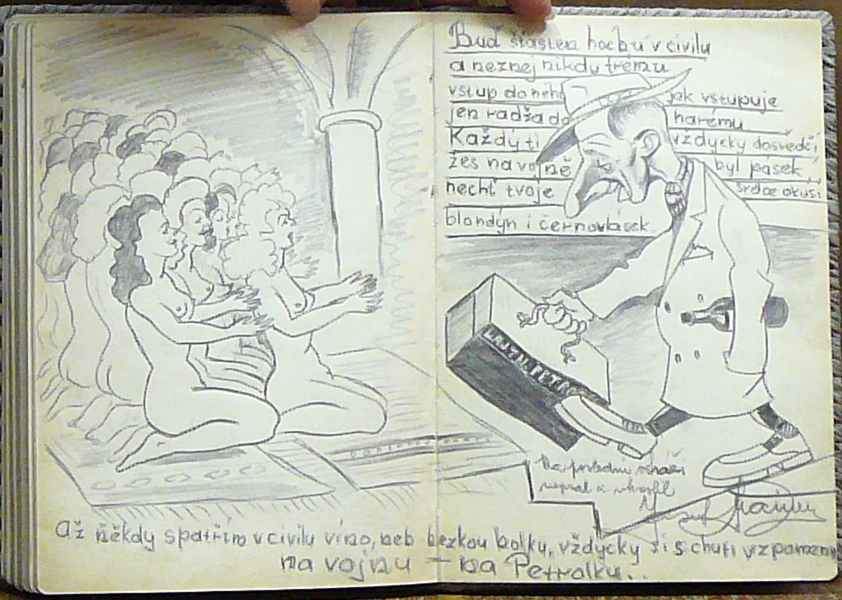 Buď šťasten hochu v civilu
a neznej nikdy tremu
vstup do něho jak vstupuje
jen radža do haremu
Každý ti vždycky dosvědčí
žes na vojně byl pasek,
nechť tvoje srdce okusí
blondýn i černovlásek
Na poslední stránku
Až někdy spatřím v civilu víno, neb hezkou holku, vždycky si s chutí vzpomenu
na vojnu – na Petrolku..